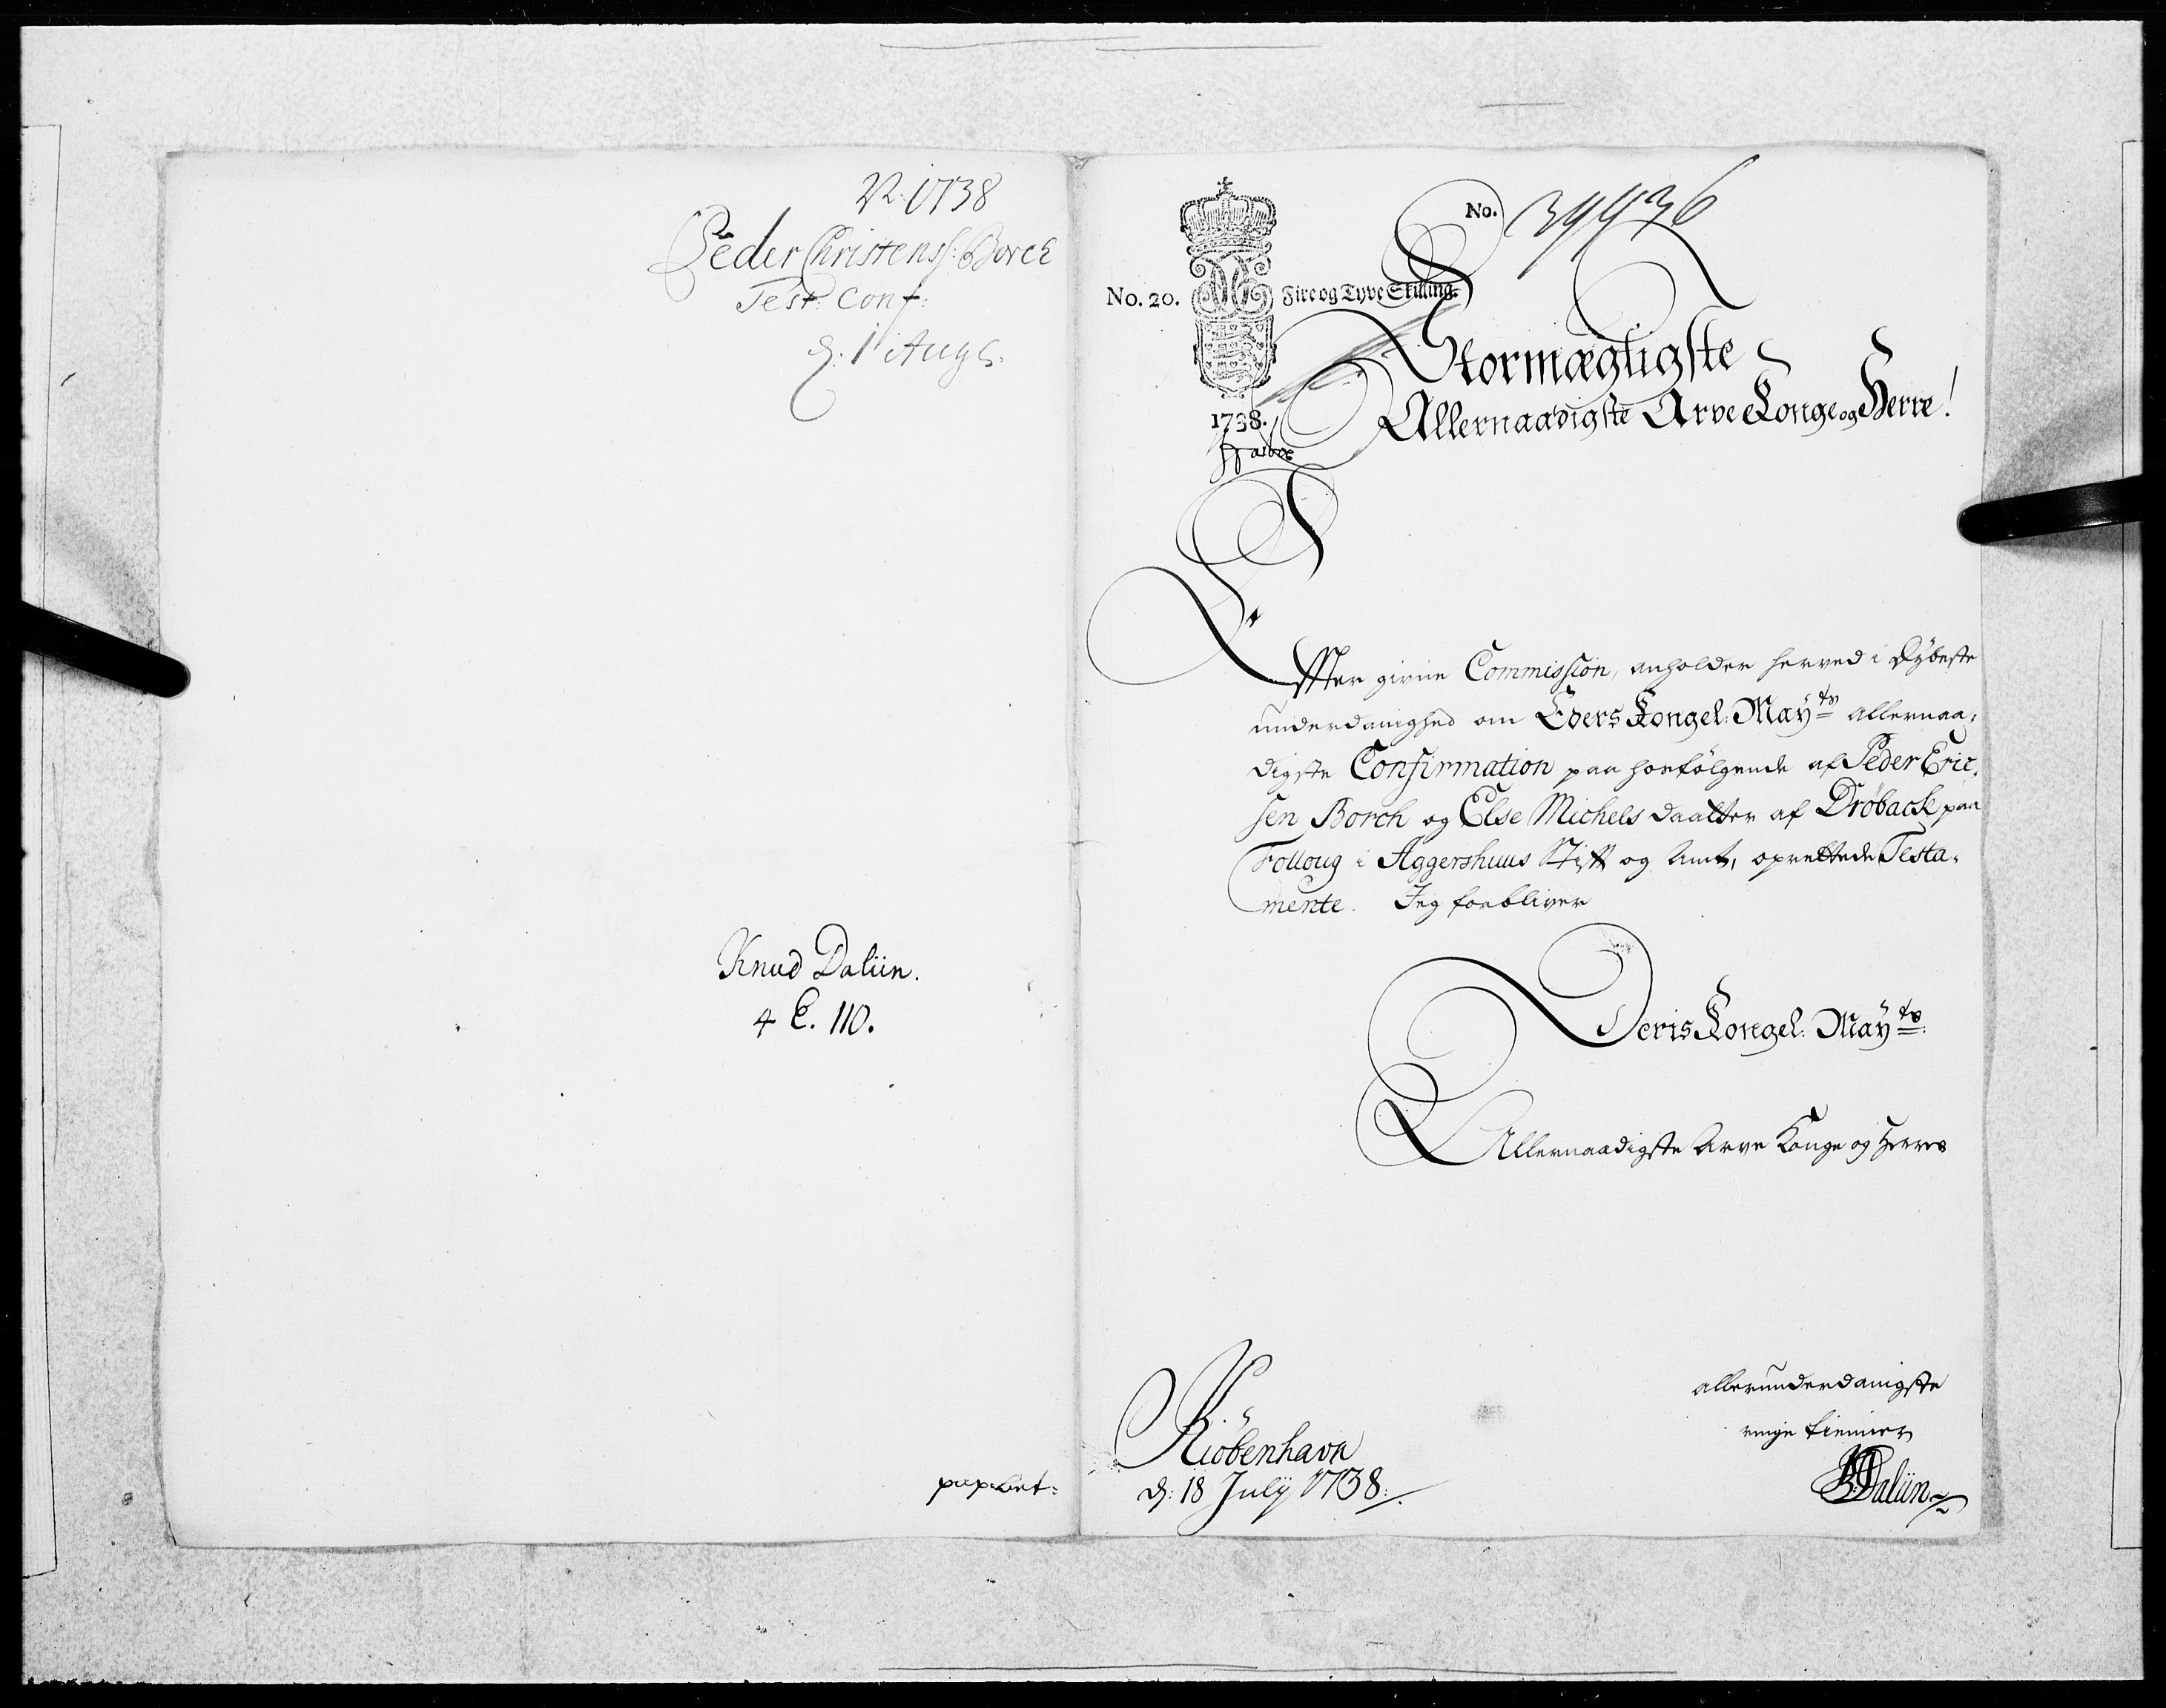 1738
Peder Christenss: Borch
Test: Conf:
d: 1 Augs.
Knud Daliin.
4 E. 110.
papiret:
No. 39936
No. 20. Fire og Tyve Skilling.
1738.
Stormægtigste
Allernaadigste Arve Konge og Herre!
Effter givne Commission, anholder herved i dybeste
underdanighed om Eders Kongel: Mayts allernaa,
digste Confirmation paa hosfølgende af Peder Eric,
sen Borch og Else Michels daatter af Drøback paa
Folloug i Aggershuus Stift og Amt, oprettede Testa,
mente. Jeg forbliver
Deris Kongel: Mayts:
Allernaadigste Arve Konge og Herres
allerunderdanigste
ringe tienner
KDaliin
Kiøbenhavn
d: 18 July 1738: